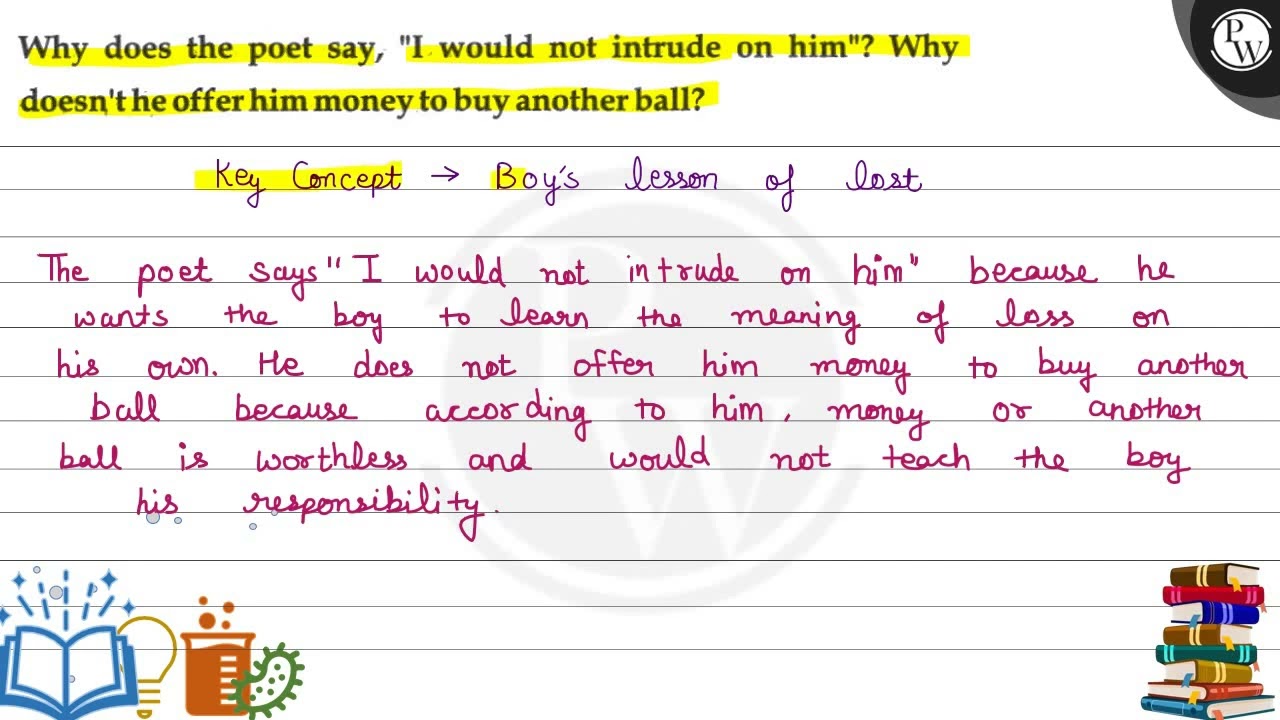 Why does the poet say, "I would not intrude on him"? Why
doesn't he offer him money to buy another ball?
PW
Key Concept → Boy's lesson of lost
The poet says "I would not intrude on him" because he
wants the boy to learn the meaning of loss on
his own. He does not offer him money to buy another
ball because according to him, money or another
ball is worthless and would not teach the boy
his responsibility.
PW